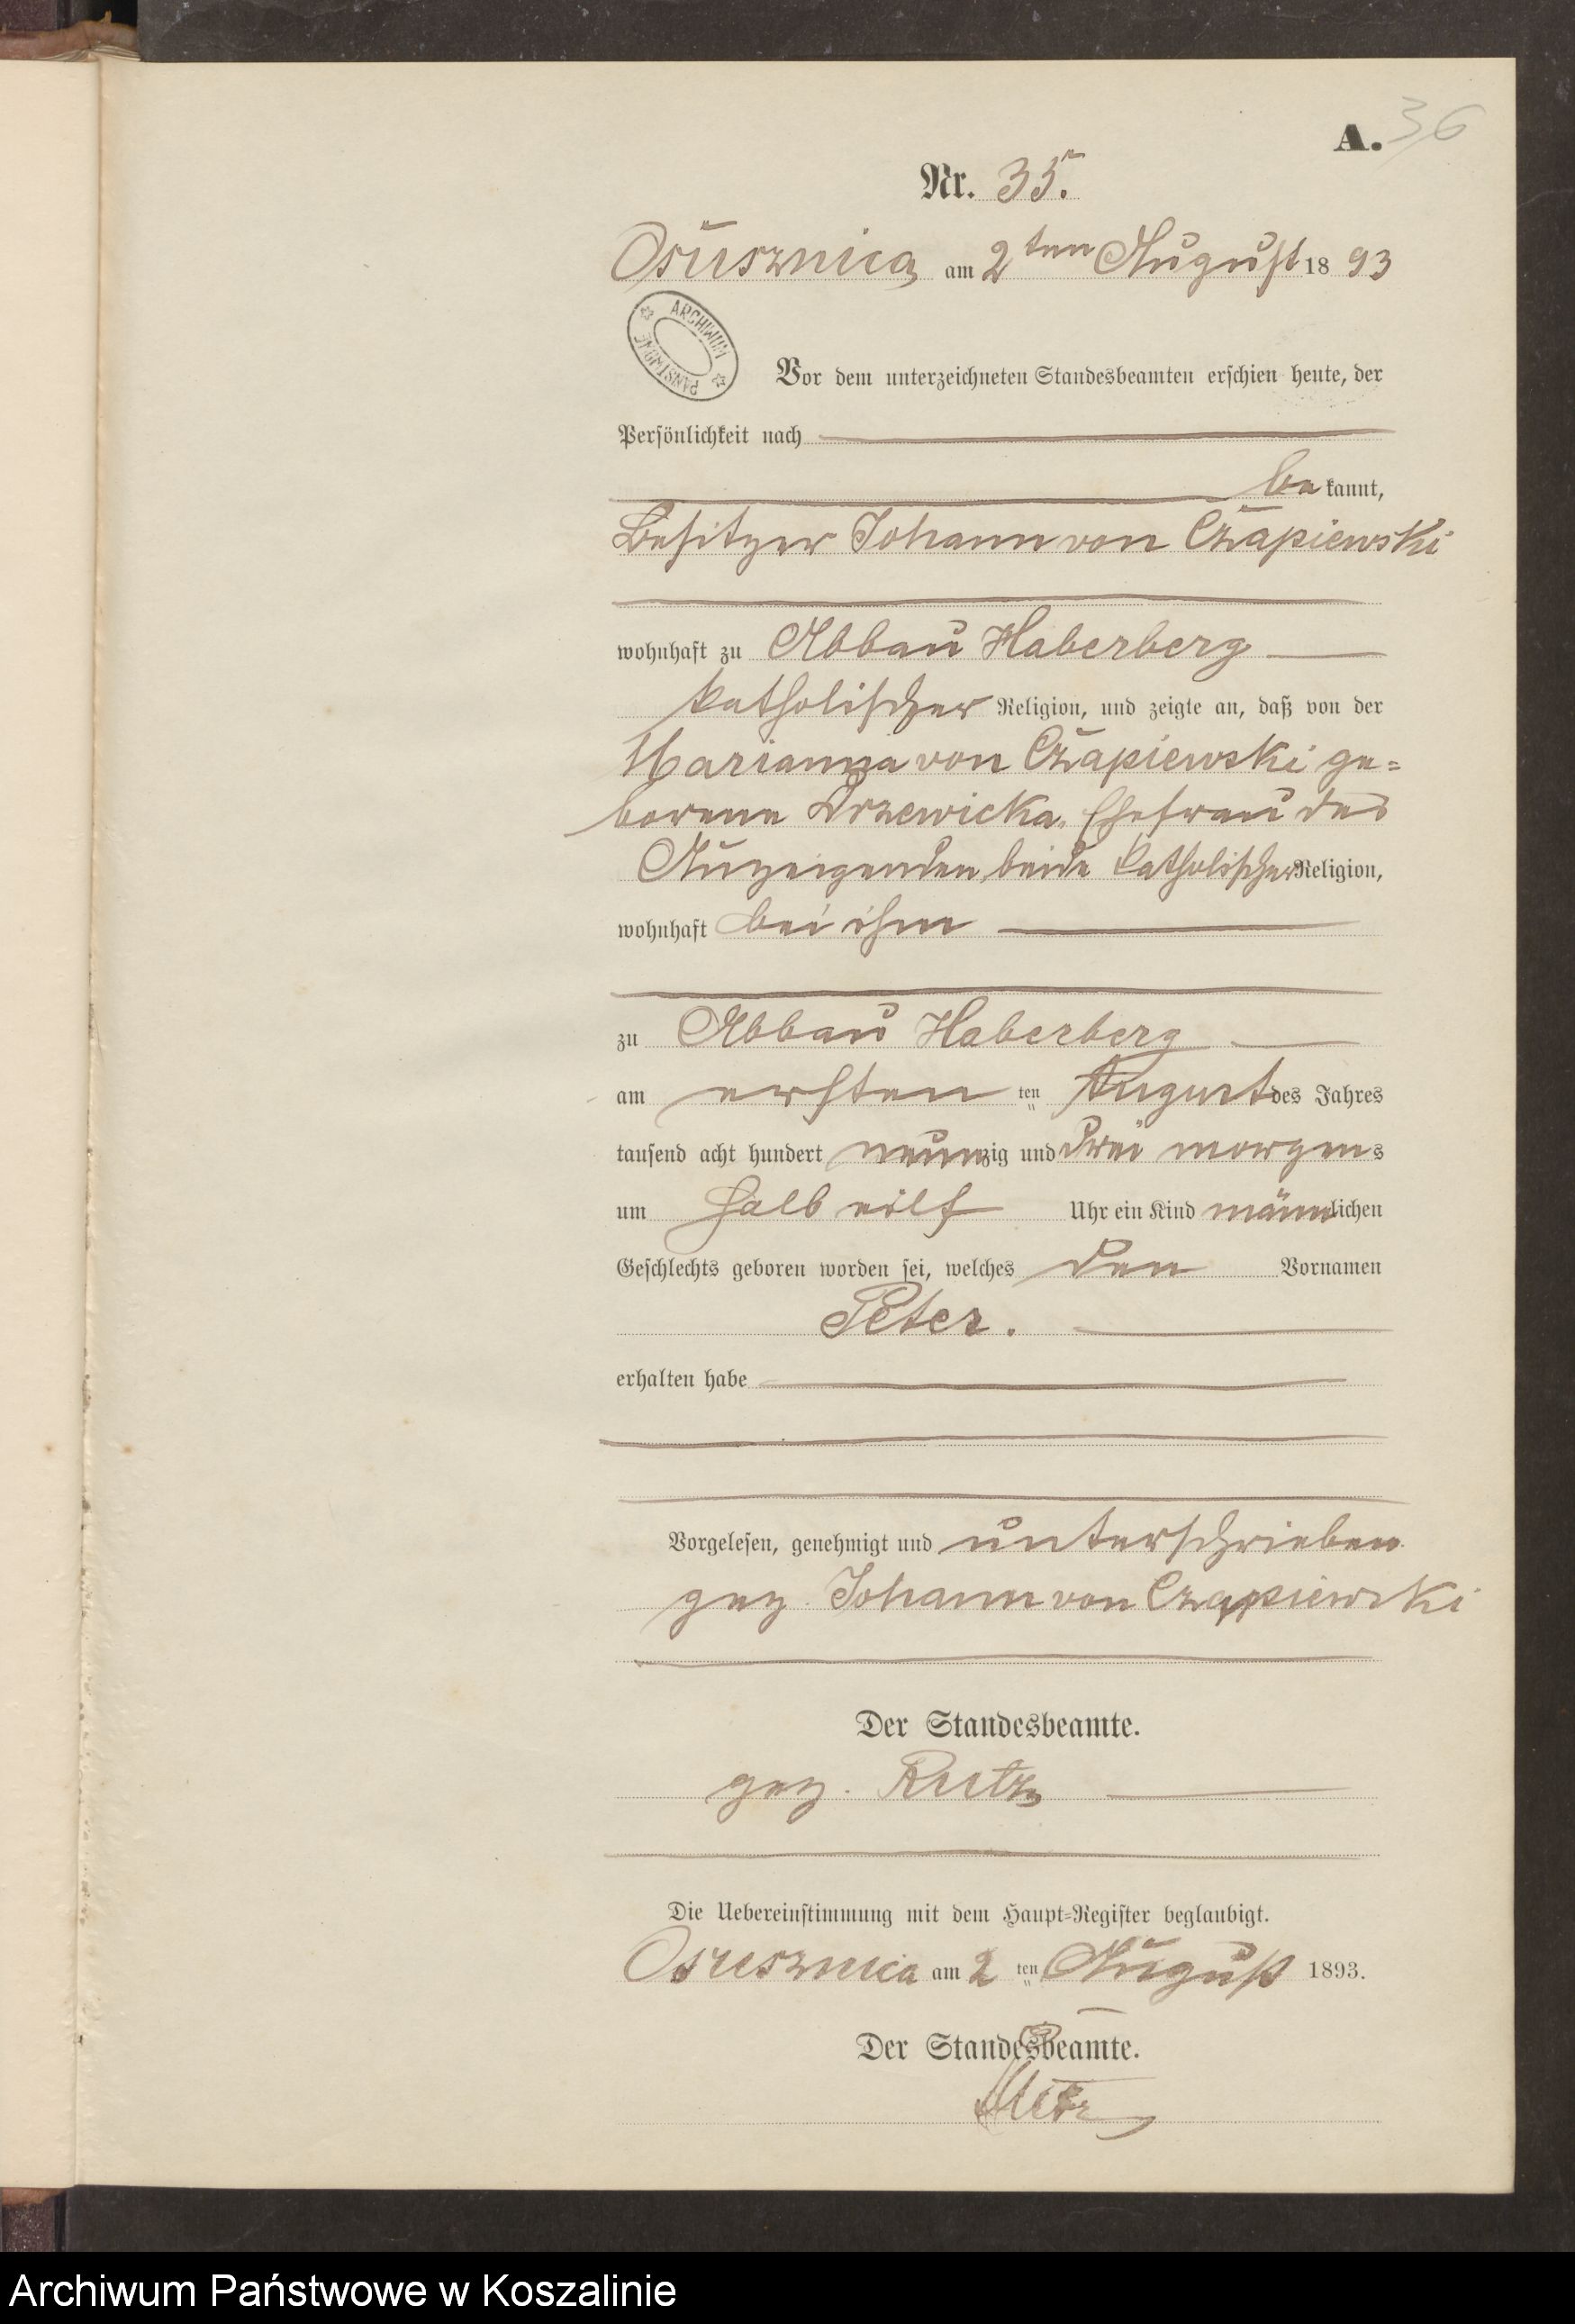 A. 36
Nr. 35.
Osusznica am 2ten August 1893
ARCHIWUM PAŃSTWOWE
Vor dem unterzeichneten Standesbeamten erschien heute, der
Persönlichkeit nach
be kannt,
Besitzer Johann von Czapiewski
wohnhaft zu Abbau Haberberg
katholischer Religion, und zeigte an, daß von der
Marianna von Czapiewski ge=
borene Orzewicka, Ehefrau des
Anzeigenden, beide katholischer Religion,
wohnhaft bei ihm
zu Abbau Haberberg
am ersten ten August des Jahres
tausend acht hundert neunzig und drei morgens
um halb eilf Uhr ein Kind männlichen
Geschlechts geboren worden sei, welches den Vornamen
Peter.
erhalten habe
Vorgelesen, genehmigt und unterschrieben
gez. Johann von Czapiewski
Der Standesbeamte.
gez. Rutz
Die Uebereinstimmung mit dem Haupt=Register beglaubigt.
Osusznica am 2 ten August 1893.
Der Standesbeamte.
Rutz
Archiwum Państwowe w Koszalinie